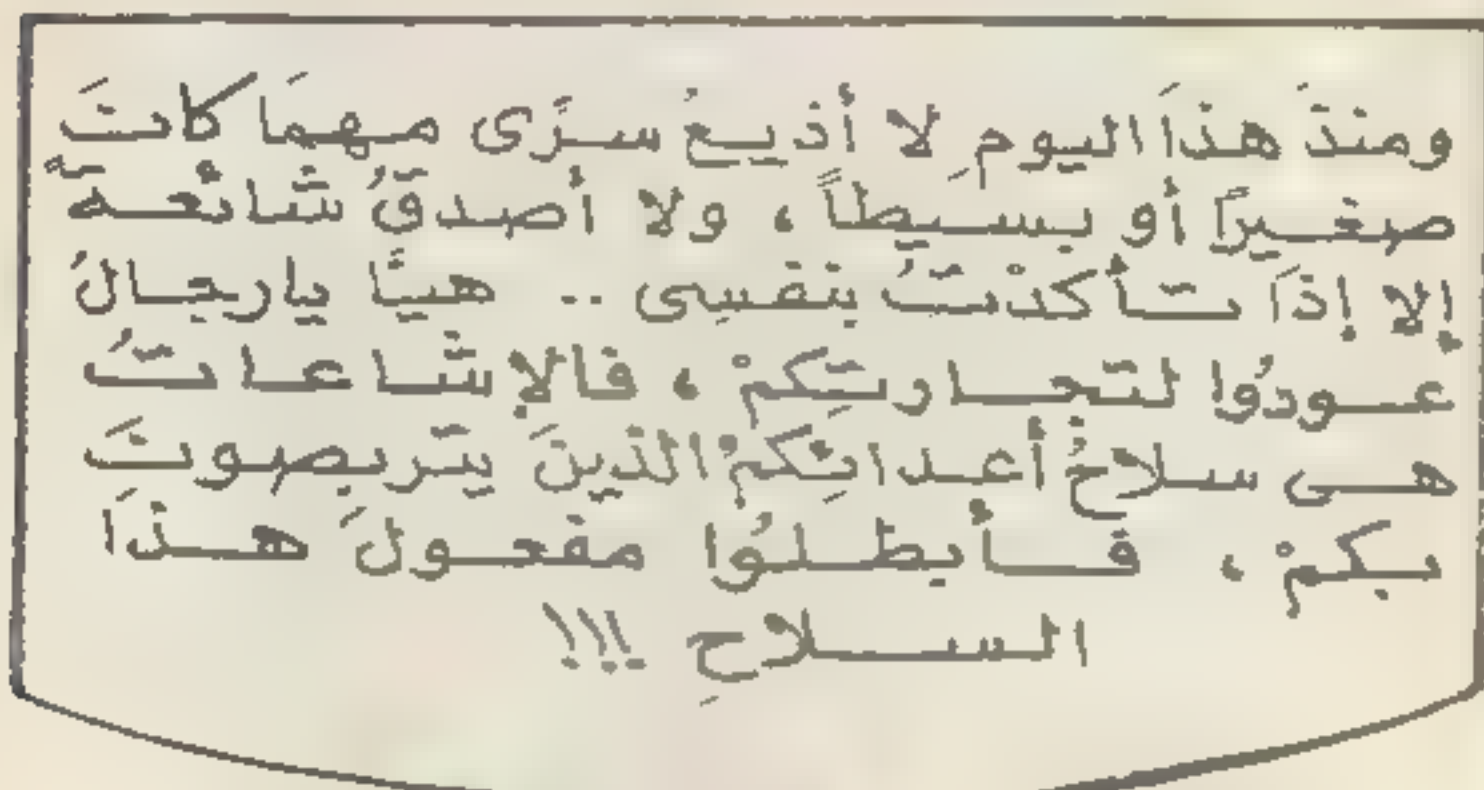 ومنذَ هذَا اليومِ لا أذيعُ سرَّى مهمَا كانَ
صغيرًا أو بسيطاً ، ولا أصدقُ شائعةً
إلا إذَا تأكدْتُ بنفسِى .. هيَّا يارجالُ
عودُوا لتجارتِكمْ ، فالإشاعاتُ
هى سلاحُ أعدائِكمْ الذينَ يتربصونَ
بكمْ ، فأبطلُوا مفعولَ هذَا
السلاحِ !!!